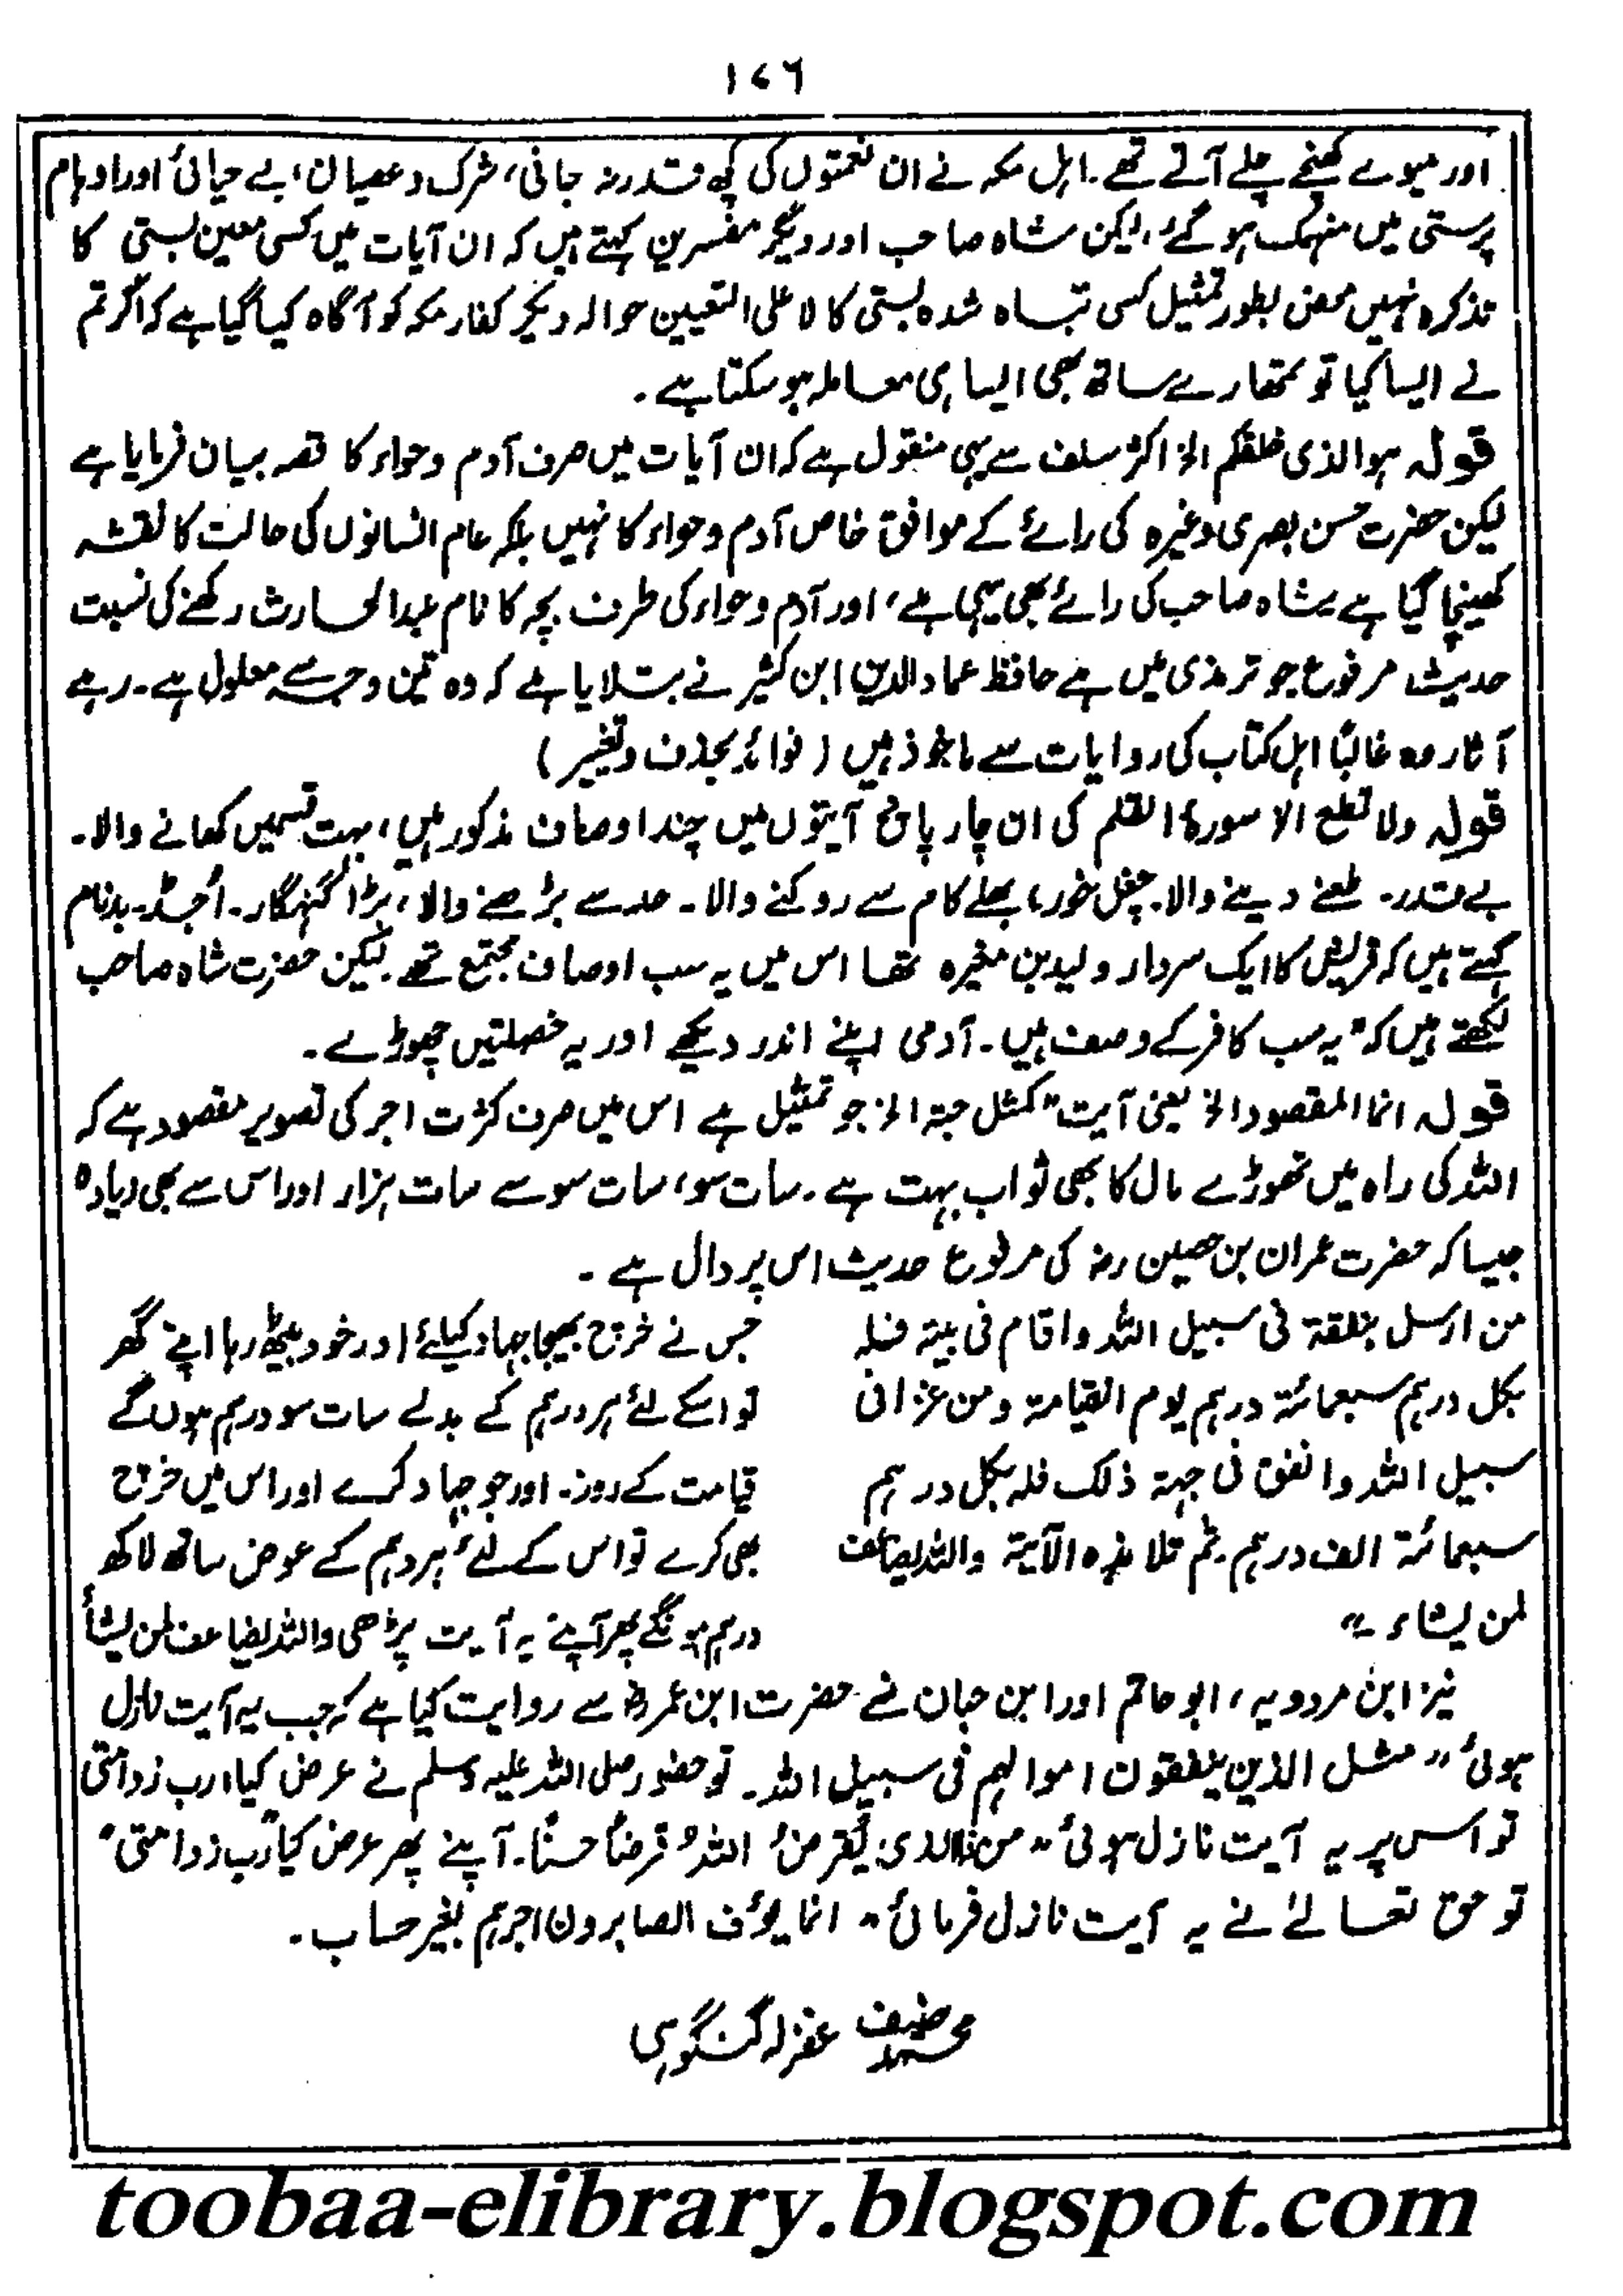 ۱۷۶
اور میوے کھنچے چلے آتے تھے۔ اہل مکہ نے ان نعمتوں کی کچھ قدر نہ جانی، شرک و عصیان، بے حیائی اور اوہام
پرستی میں منہمک ہو گئے، لیکن شاہ صاحب اور دیگر مفسرین کہتے ہیں کہ ان آیات میں کسی معین بستی کا
تذکرہ نہیں محض بطور تمثیل کسی تباہ شدہ بستی کا لا علی التعیین حوالہ دیکر کفار مکہ کو آگاہ کیا گیا ہے کہ اگر تم
نے ایسا کیا تو تمھارے ساتھ بھی ایسا ہی معاملہ ہو سکتا ہے۔
قولہ ہو الذی خلقکم الخ اکثر سلف سے یہی منقول ہے کہ ان آیات میں صرف آدم و حواء کا قصہ بیان فرمایا ہے
لیکن حضرت حسن بصری وغیرہ کی رائے کے موافق خاص آدم و حواء کا نہیں بلکہ عام انسانوں کی حالت کا نقشہ
کھینچا گیا ہے شاہ صاحب کی رائے بھی یہی ہے، اور آدم و حواء کی طرف بچہ کا نام عبد الحارث رکھنے کی نسبت
حدیث مرفوع جو ترمذی میں ہے حافظ عماد الدین ابن کثیر نے بتلایا ہے کہ وہ تین وجہ سے معلول ہے۔ رہے
آثار وہ غالبًا اہل کتاب کی روایات سے ماخوذ ہیں (فوائد بحذف و تغییر)
قولہ ولا تطع الا سورۃ القلم کی ان چار پانچ آیتوں میں چند اوصاف مذکور ہیں، بہت قسمیں کھانے والا۔
بے قدر۔ طعنے دینے والا۔ چغل خور، بھلے کام سے روکنے والا۔ حد سے بڑھنے والا، بڑا گنہگار۔ اُجڈ۔ بدنام
کہتے ہیں کہ قریش کا ایک سردار ولید بن مغیرہ تھا اس میں یہ سب اوصاف مجتمع تھے۔ لیکن حضرت شاہ صاحب
لکھتے ہیں کہ "یہ سب کافر کے وصف ہیں۔ آدمی اپنے اندر دیکھے اور یہ خصلتیں چھوڑے۔
قولہ انما المقصود الخ یعنی آیت "کمثل حبۃ الخ جو تمثیل ہے اس میں صرف کثرت اجر کی تصویر مقصود ہے کہ
اللہ کی راہ میں تھوڑے مال کا بھی ثواب بہت ہے۔ سات سو، سات سو سے سات ہزار اور اس سے بھی زیادہ
جیسا کہ حضرت عمران بن حصین رضہ کی مرفوع حدیث اس پر دال ہے۔
من ارسل بنفقۃ فی سبیل اللہ واقام فی بیتہ فلہ
بکل درہم سبعمائۃ درہم یوم القیامۃ ومن غزا فی
سبیل اللہ وانفق فی جہۃ ذلک فلہ بکل درہم
سبعمائۃ الف درہم ثم تلا ہذہ الآیۃ واللہ یضاعف
لمن یشاء۔"
جس نے خرچ بھیجا جہاد کیلئے اور خود بیٹھ رہا اپنے گھر
تو اسکے لئے ہر درہم کے بدلے سات سو درہم ہوں گے
قیامت کے روز۔ اور جو جہاد کرے اور اس میں خرچ
بھی کرے تو اس کے لئے ہر درہم کے عوض ساتھ لاکھ
درہم ہونگے پھر آپنے یہ آیت پڑھی واللہ یضاعف لمن یشأ
نیز ابن مردویہ، ابو حاتم اور ابن حبان نے حضرت ابن عمر رضہ سے روایت کیا ہے کہ جب یہ آیت نازل
ہوئی "مثل الذین ینفقون اموالہم فی سبیل اللہ۔ تو حضور صلی اللہ علیہ وسلم نے عرض کیا، رب زد امتی
تو اس پر یہ آیت نازل ہوئی "من ذا الذی یُقرضُ اللہَ قرضًا حسنًا۔ آپنے پھر عرض کیا "رب زد امتی"
تو حق تعالےٰ نے یہ آیت نازل فرمائی "انما یوفی الصابرون اجرہم بغیر حساب۔
محمد حنیف غفرلہ گنگوہی
toobaa-elibrary.blogspot.com